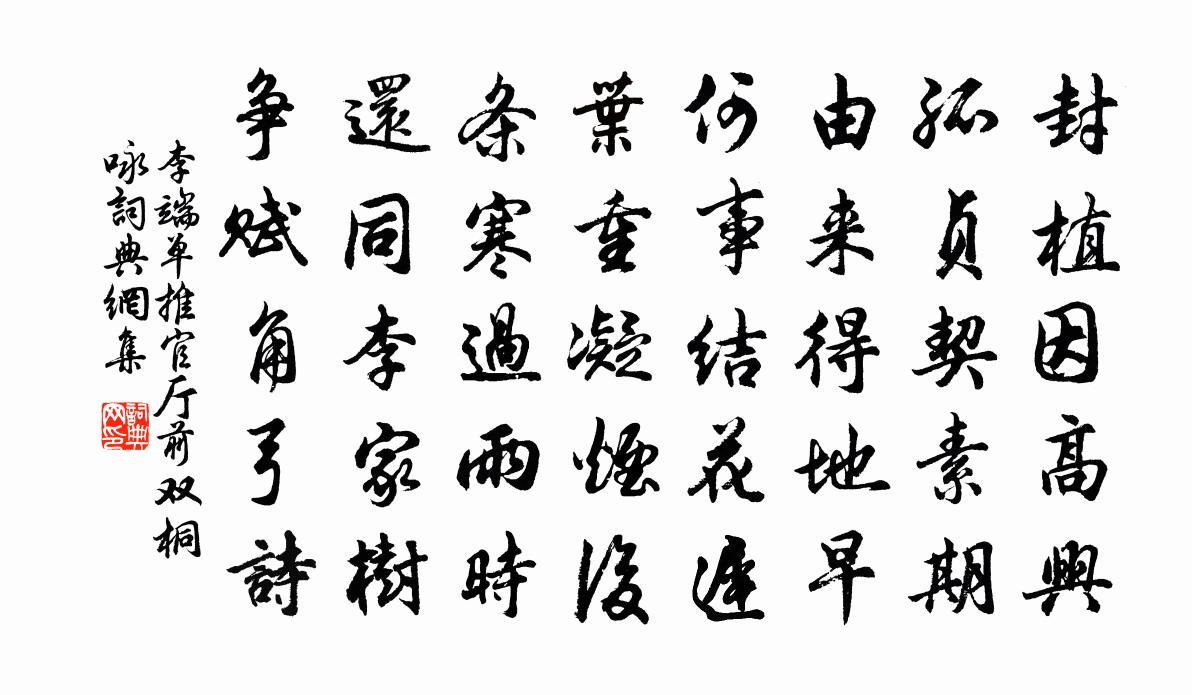 封植因高興
孤貞契素期
由来得地早
何事结花遲
葉重凝煙後
条寒過雨時
還同李家樹
爭賦角弓詩
李端单推官厅前双桐
咏詞典網集
詞典
网印